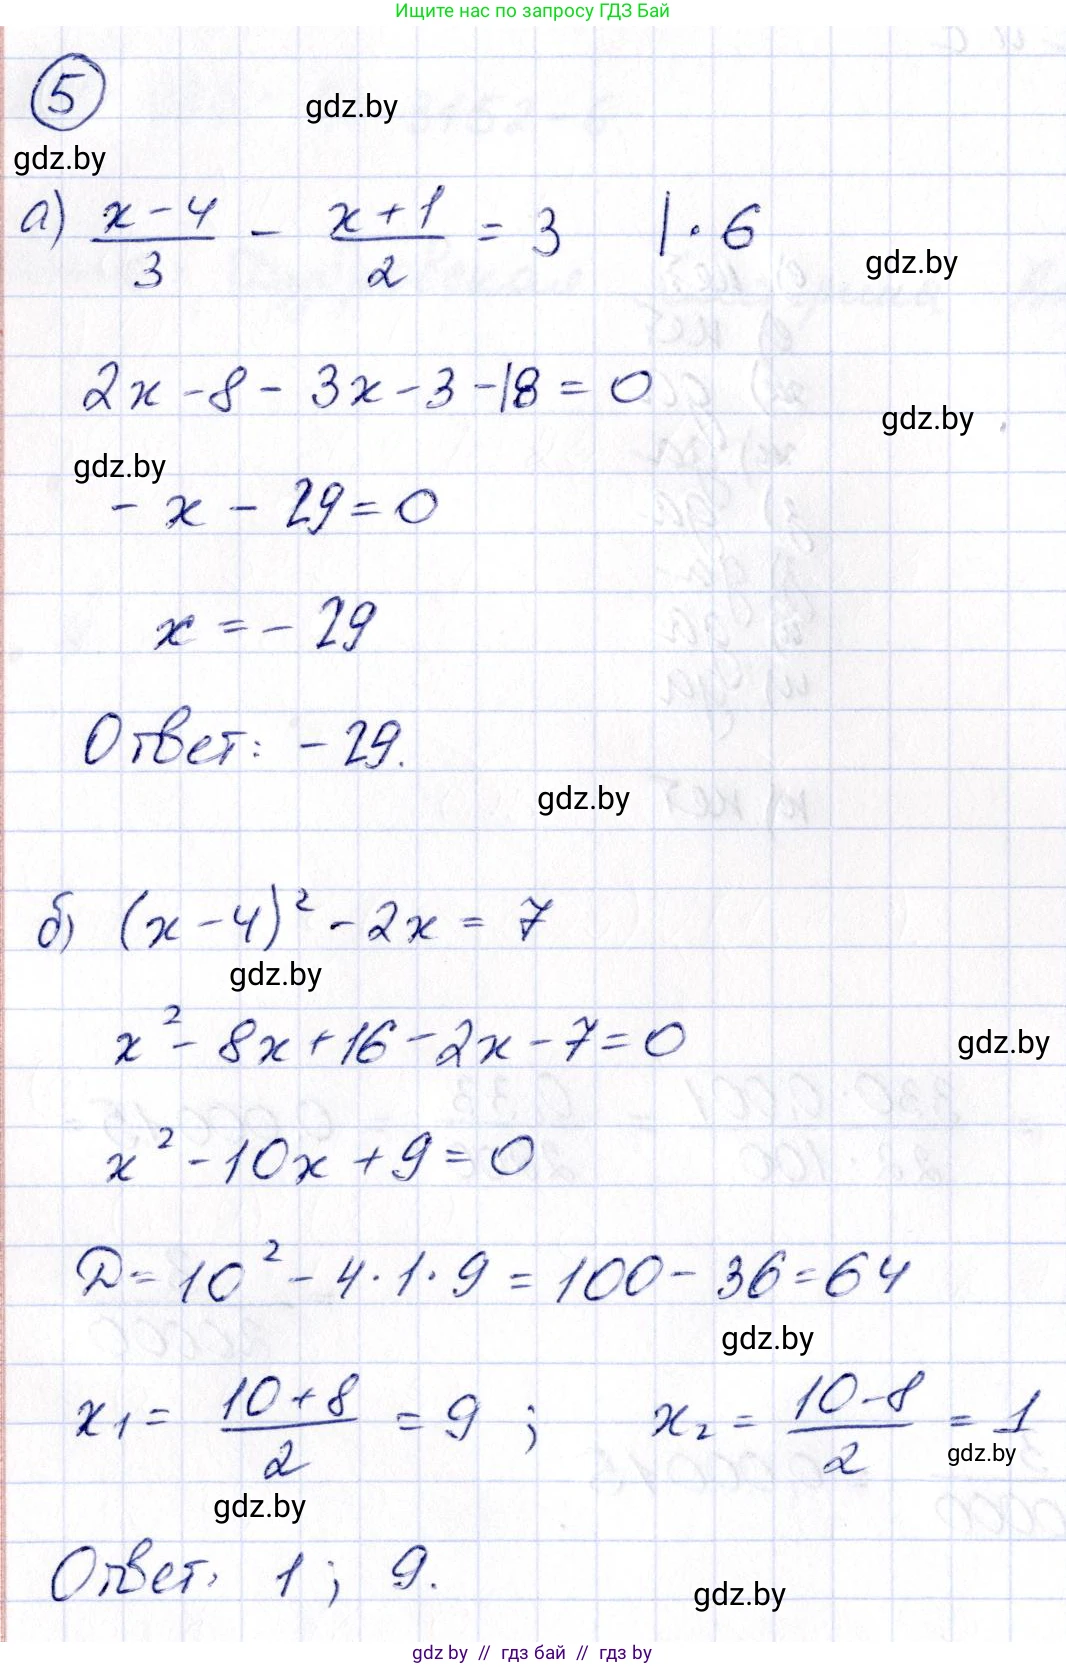 Ищите нас по запросу ГДЗ Бай
5
gdz.by
gdz.by
а) (x-4)/3 - (x+1)/2 = 3 |·6
gdz.by
2x-8-3x-3-18=0
gdz.by
gdz.by
-x-29=0
x=-29
Ответ: -29.
gdz.by
б) (x-4)² - 2x = 7
gdz.by
x² - 8x+16-2x-7=0
gdz.by
x²-10x+9=0
D=10²-4·1·9=100-36=64
gdz.by
x₁ = (10+8)/2 = 9 ; x₂ = (10-8)/2 = 1
gdz.by
gdz.by
Ответ: 1; 9.
gdz.by
gdz by // гдз бай // гдз by